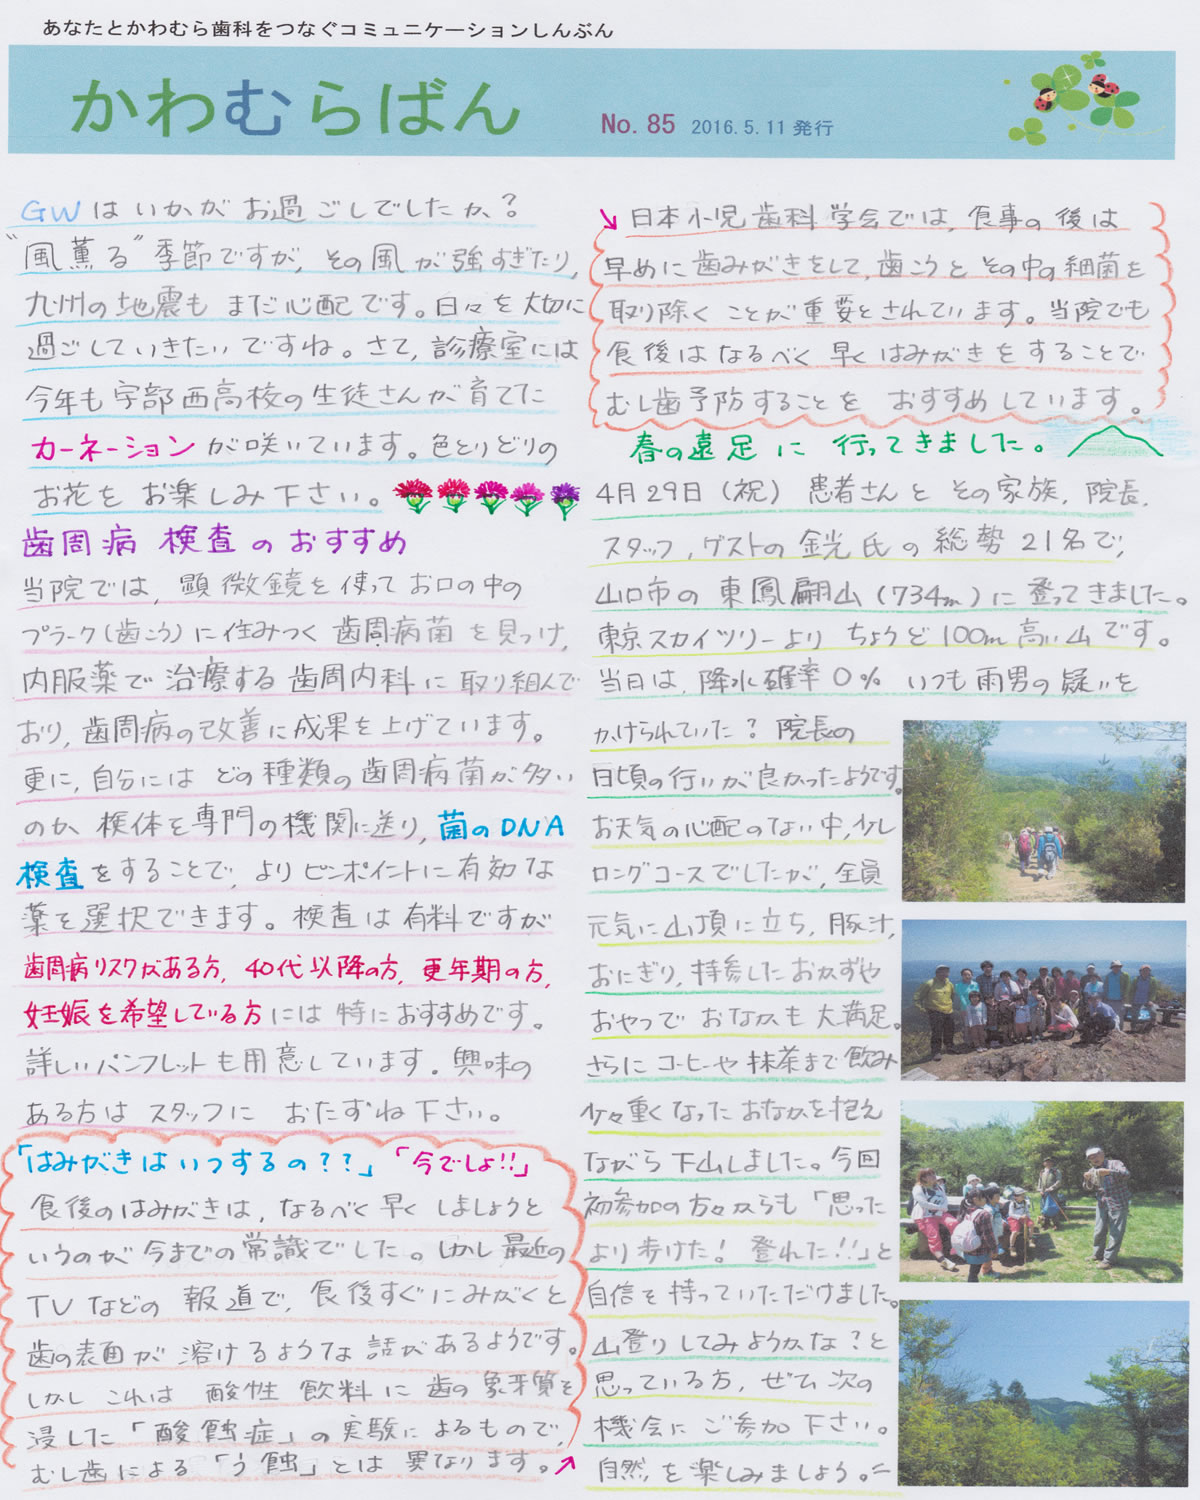 あなたとかわむら歯科をつなぐコミュニケーションしんぶん
かわむらばん
No. 85 2016.5.11 発行
GWはいかがお過ごしでしたか？
"風薫る"季節ですが、その風が強すぎたり、
九州の地震もまだ心配です。日々を大切に
過ごしていきたいですね。さて、診療室には
今年も宇部西高校の生徒さんが育てた
カーネーションが咲いています。色とりどりの
お花をお楽しみ下さい。
歯周病検査のおすすめ
当院では、顕微鏡を使ってお口の中の
プラーク(歯こう)に住みつく歯周病菌を見つけ、
内服薬で治療する歯周内科に取り組んで
おり、歯周病の改善に成果を上げています。
更に、自分にはどの種類の歯周病菌が多い
のか、検体を専門の機関に送り、菌のDNA
検査をすることで、よりピンポイントに有効な
薬を選択できます。検査は有料ですが
歯周病リスクがある方、40代以降の方、更年期の方、
妊娠を希望している方には特におすすめです。
詳しいパンフレットも用意しています。興味の
ある方はスタッフに おたずね下さい。
「はみがきはいつするの？？」「今でしょ!!」
食後のはみがきは、なるべく早くしましょうと
いうのが今までの常識でした。しかし最近の
TVなどの報道で、食後すぐにみがくと
歯の表面が溶けるような話があるようです。
しかしこれは酸性飲料に歯の象牙質を
浸した「酸蝕症」の実験によるもので、
むし歯による「う蝕」とは異なります。↗
↘日本小児歯科学会では、食事の後は
早めに歯みがきをして、歯こうとその中の細菌を
取り除くことが重要とされています。当院でも
食後はなるべく早くはみがきをすることで
むし歯予防することをおすすめしています。
春の遠足に行ってきました。
4月29日(祝)患者さんとその家族、院長、
スタッフ、ゲストの金光氏の総勢21名で、
山口市の東鳳翩山(734m)に登ってきました。
東京スカイツリーよりちょうど100m高い山です。
当日は、降水確率0% いつも雨男の疑いを
かけられていた？院長の
日頃の行いが良かったようです。
お天気の心配のない中、少し
ロングコースでしたが、全員
元気に山頂に立ち、豚汁、
おにぎり、持参したおかずや
おやつでおなかも大満足。
さらにコーヒーや抹茶まで飲み
少々重くなったおなかを抱え
ながら下山しました。今回
初参加の方々からも「思った
より歩けた！登れた!!」と
自信を持っていただけました。
山登りしてみようかな？と
思っている方、ぜひ次の
機会にご参加下さい。
自然を楽しみましょう。